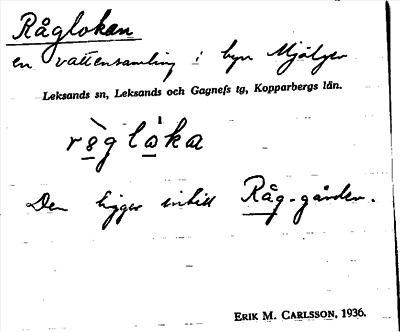 Råglokan
en vattensamling i byn Mjälgen
Leksands sn, Leksands och Gagnefs tg, Kopparbergs län.
rågloka
Den ligger intill Råg-gården.
ERIK M. CARLSSON, 1936.